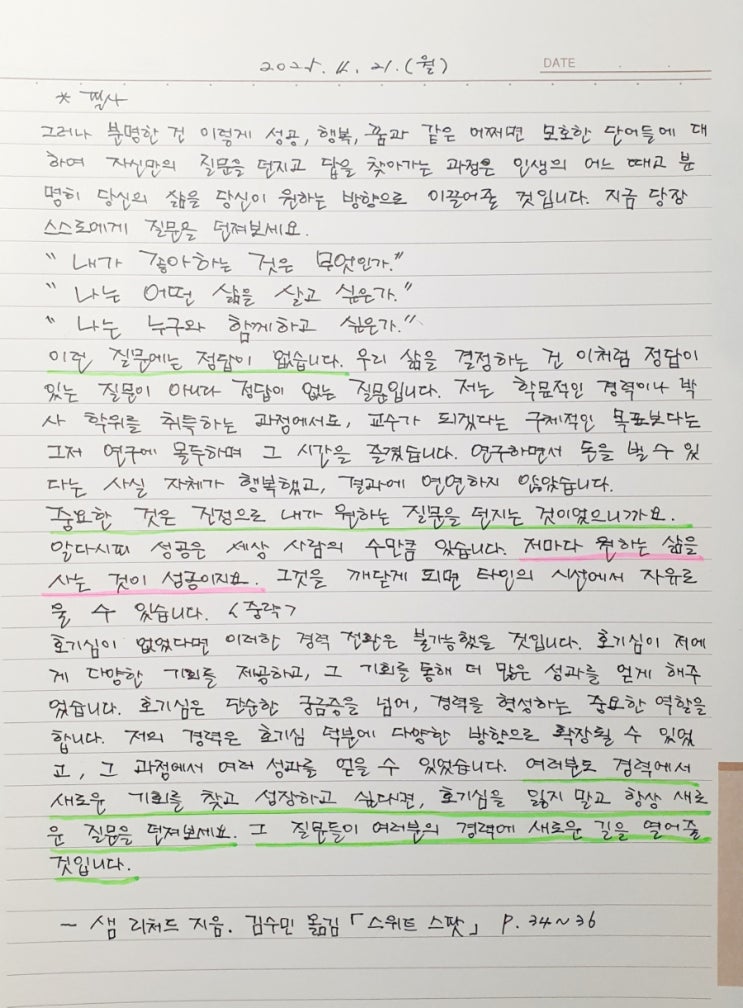 2025. 4. 21. (월)
DATE
* 필사
그러나 분명한 건 이렇게 성공, 행복, 꿈과 같은 어쩌면 모호한 단어들에 대
하여 자신만의 질문을 던지고 답을 찾아가는 과정은 인생의 어느 때고 분
명히 당신의 삶을 당신이 원하는 방향으로 이끌어줄 것입니다. 지금 당장
스스로에게 질문을 던져보세요.
" 내가 좋아하는 것은 무엇인가."
" 나는 어떤 삶을 살고 싶은가."
" 나는 누구와 함께하고 싶은가."
이런 질문에는 정답이 없습니다. 우리 삶을 결정하는 건 이처럼 정답이
있는 질문이 아니라 정답이 없는 질문입니다. 저는 학문적인 경력이나 박
사 학위를 취득하는 과정에서도, 교수가 되겠다는 구체적인 목표보다는
그저 연구에 몰두하며 그 시간을 즐겼습니다. 연구하면서 돈을 벌 수 있
다는 사실 자체가 행복했고, 결과에 연연하지 않았습니다.
중요한 것은 진정으로 내가 원하는 질문을 던지는 것이었으니까요.
알다시피 성공은 세상 사람의 수만큼 있습니다. 저마다 원하는 삶을
사는 것이 성공이지요. 그것을 깨닫게 되면 타인의 시선에서 자유로
울 수 있습니다. <중략>
호기심이 없었다면 이러한 경력 전환은 불가능했을 것입니다. 호기심이 저에
게 다양한 기회를 제공하고, 그 기회를 통해 더 많은 성과를 얻게 해주
었습니다. 호기심은 단순한 궁금증을 넘어, 경력을 형성하는 중요한 역할을
합니다. 저의 경력은 호기심 덕분에 다양한 방향으로 확장될 수 있었
고, 그 과정에서 여러 성과를 얻을 수 있었습니다. 여러분도 경력에서
새로운 기회를 찾고 성장하고 싶다면, 호기심을 잃지 말고 항상 새로
운 질문을 던져보세요. 그 질문들이 여러분의 경력에 새로운 길을 열어줄
것입니다.
- 샘 리처드 지음. 김수민 옮김 「스위트 스팟」 P. 34~36